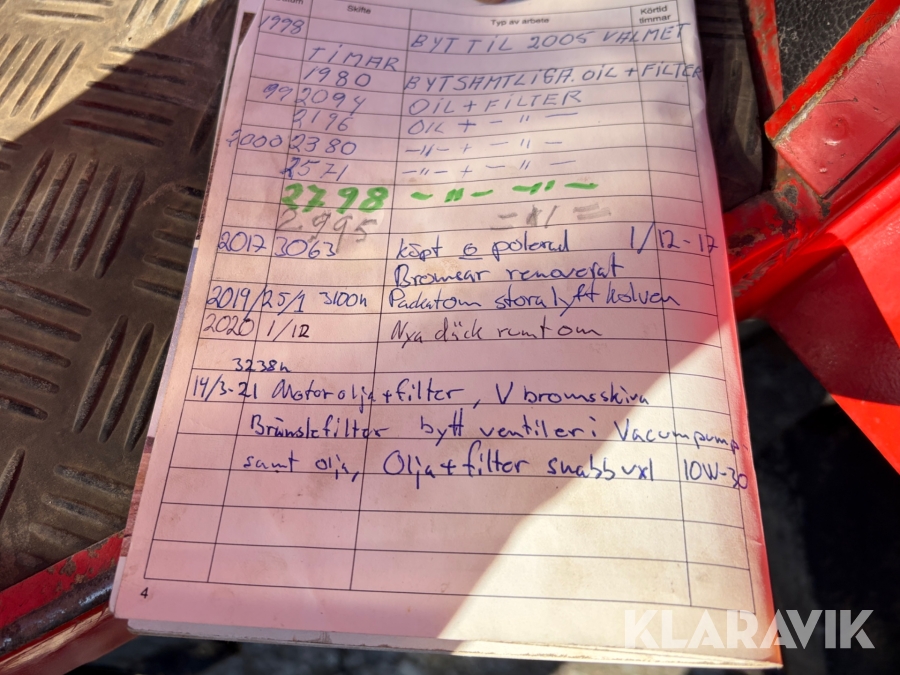 Skifte Typ av arbete Körtid timmar
1998 BYT TIL 2005 VALMET
TIMAR
1980 BYT SAMTLIGA. OIL + FILTER
99 2094 OIL + FILTER
2196 OIL + - " -
2000 2380 -"- + - " -
2571 -"- + - " -
2798 - " - -"-
2995 - " -
2017 3063 köpt o polerad 1/12-17
Bromsar renoverat
2019/25/1 3100h Packatom stora lyftkolven
2020 1/12 Nya däck runtom
3238h
14/3-21 Motorolja+filter, V bromsskiva
Bränslefilter bytt ventiler i Vacumpump
samt olja, Olja+filter snabbvxl 10W-30
4
KLARAVIK